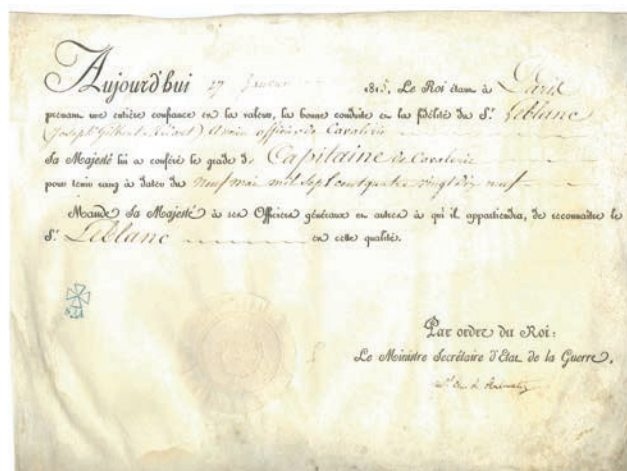 Aujourd'hui 27 Janvier 1815, Le Roi étant à Paris
prenant une entière confiance en la valeur, la bonne conduite et la fidélité du Sr. Leblanc
(Joseph Gilbert ) officier de Cavalerie
Sa Majesté lui a conféré le grade de Capitaine de Cavalerie
pour tenir rang à dater du neuf mai mil sept cent quatre vingt dix neuf
Mande Sa Majesté à ses Officiers généraux et autres à qui il appartiendra, de reconnaître le
Sr. Leblanc en cette qualité.
Par ordre du Roi:
Le Ministre Secrétaire d'Etat de la Guerre,